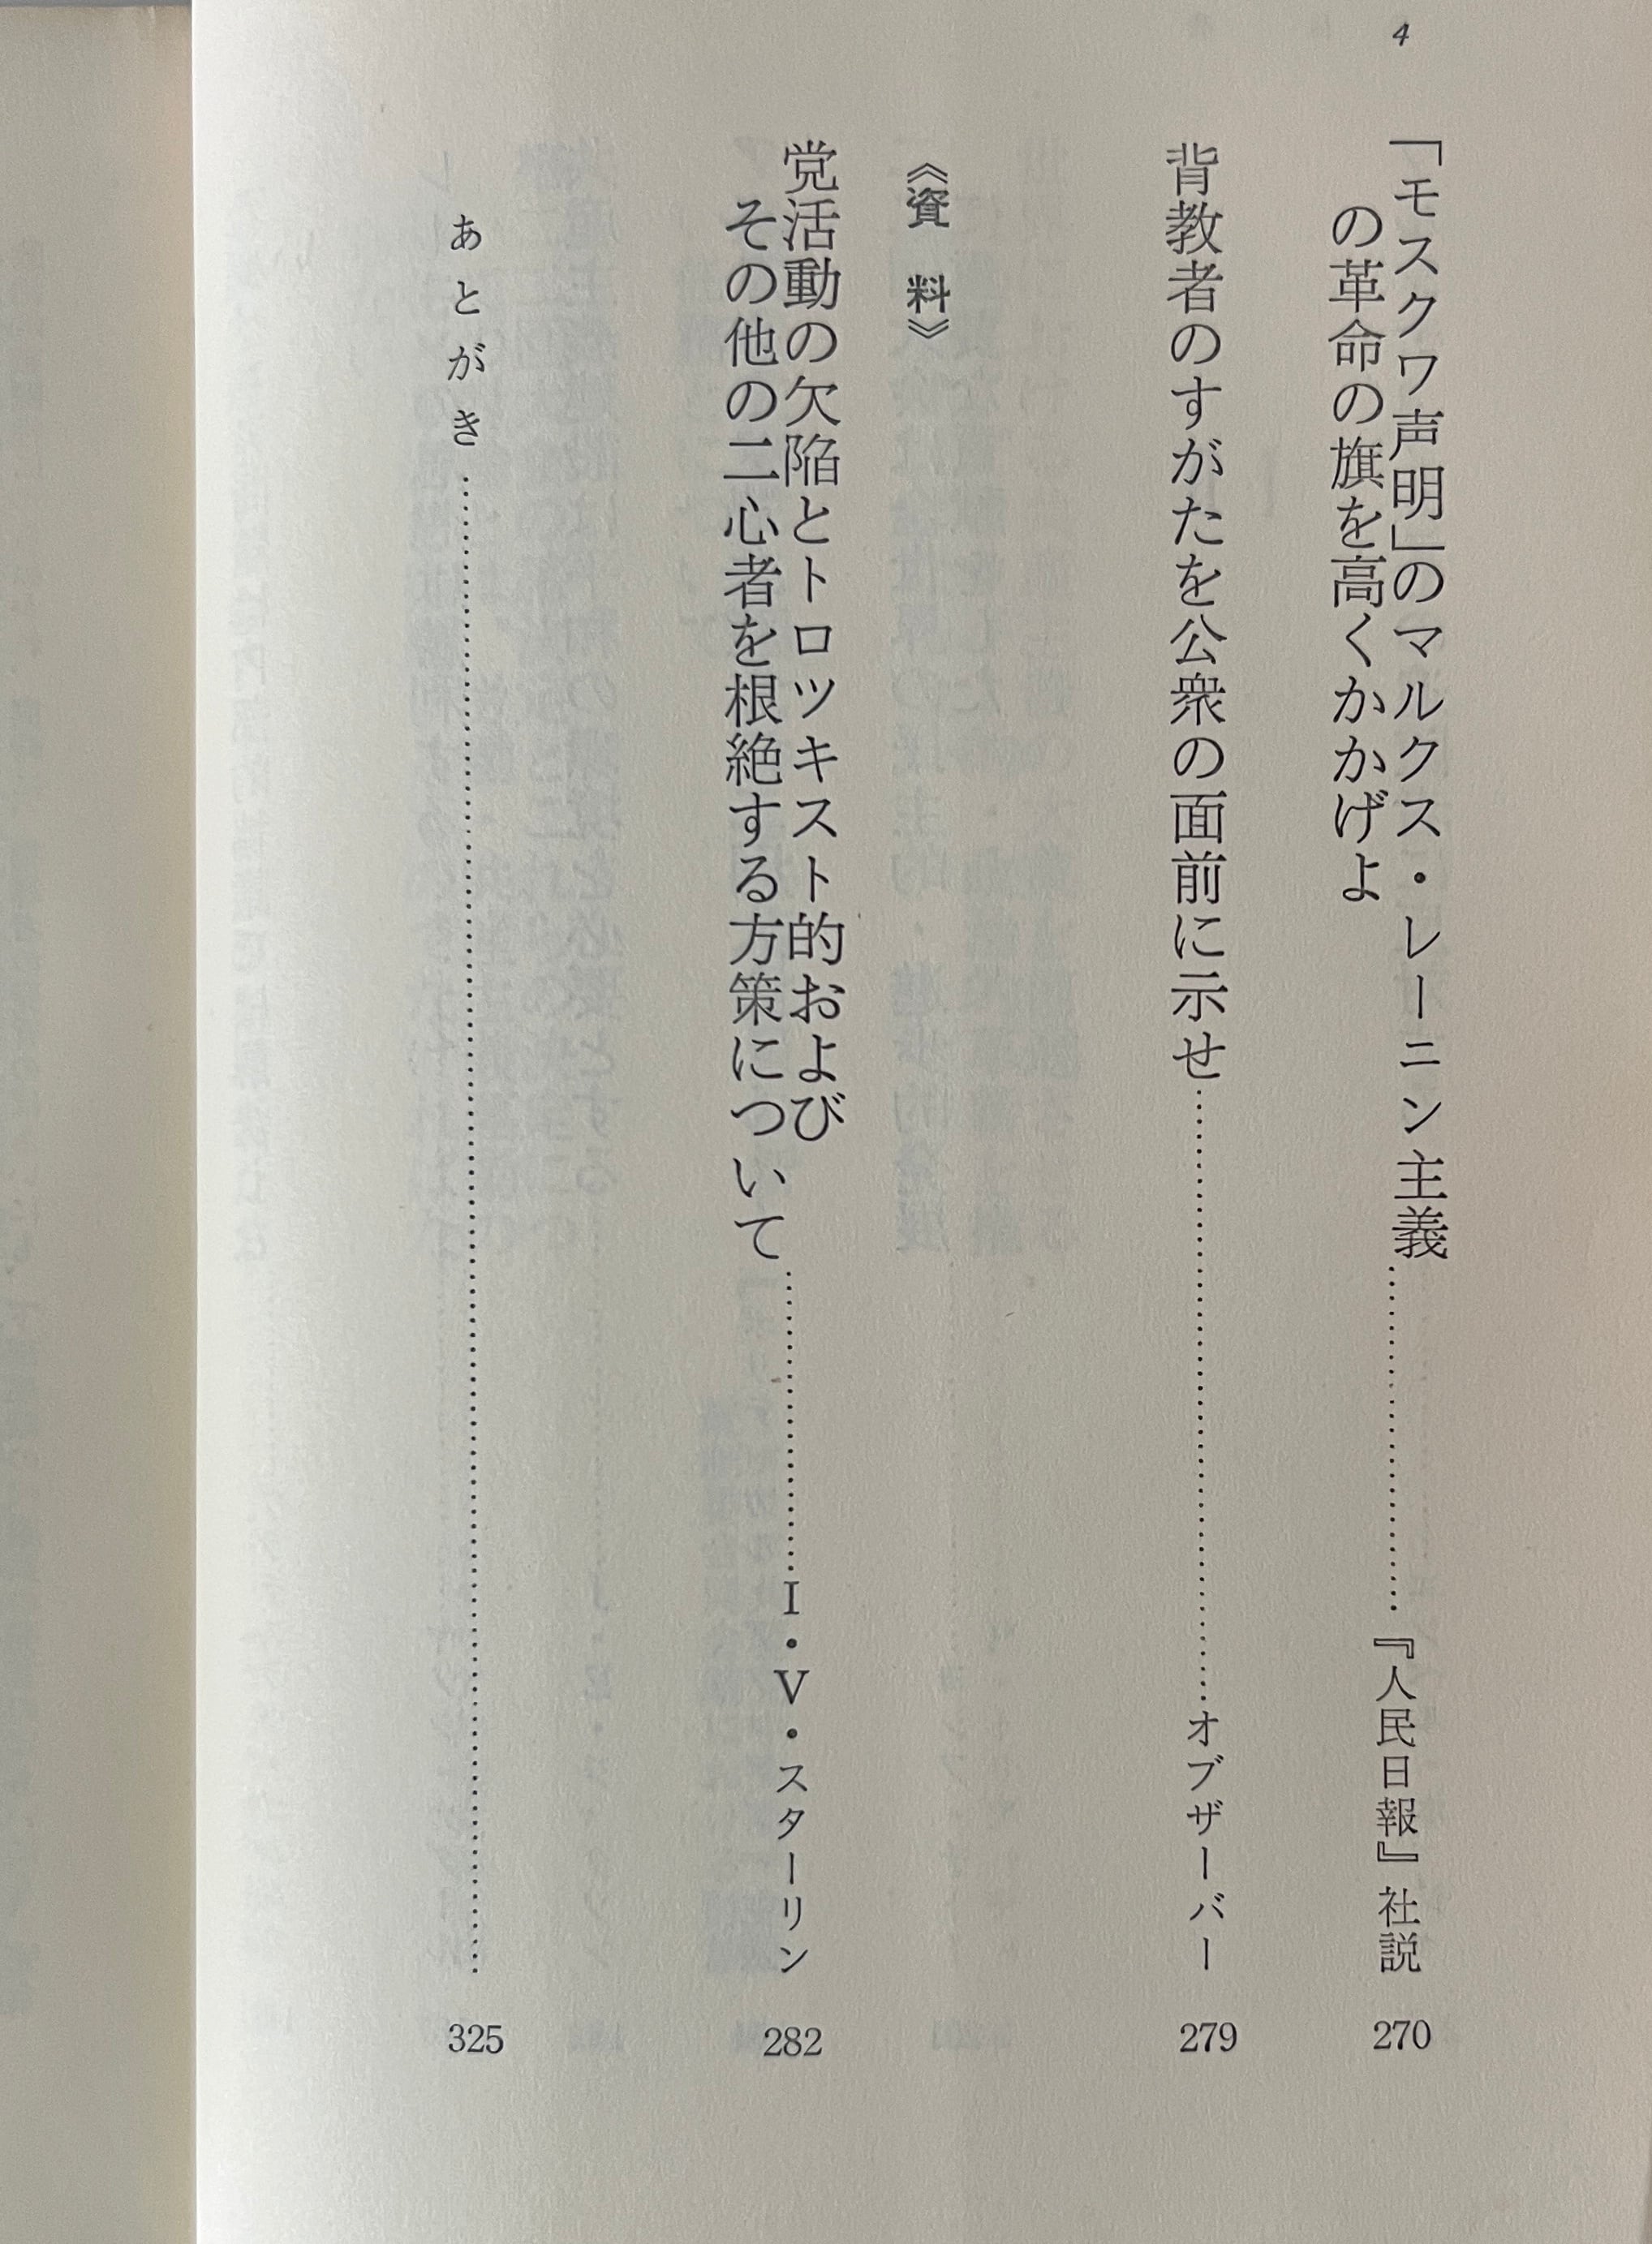 4
「モスクワ声明」のマルクス・レーニン主義
の革命の旗を高くかかげよ……『人民日報』社説 270
背教者のすがたを公衆の面前に示せ……オブザーバー 279
《資 料》
党活動の欠陥とトロツキスト的および
その他の二心者を根絶する方策について……I・V・スターリン 282
あとがき…… 325